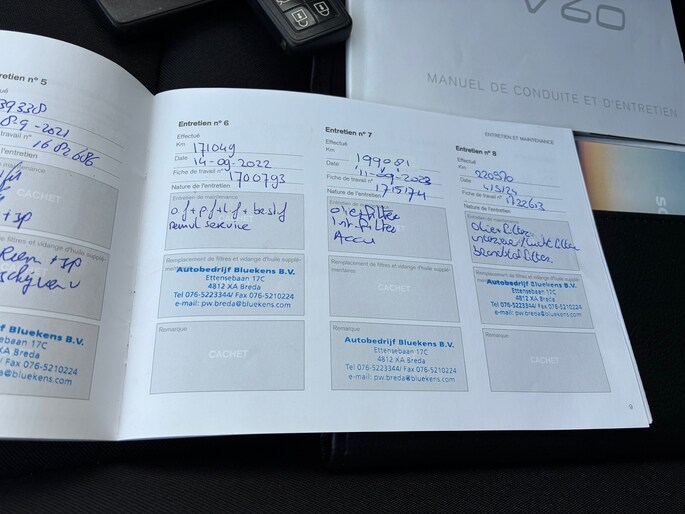 V60
MANUEL DE CONDUITE ET D'ENTRETIEN
ENTRETIEN ET MAINTENANCE
retien n° 5
CACHET
+ sp
de filtres et vidange d'huile supplé-
+ sp
f Bluekens B.V.
an 17C
XA Breda
/ Fax 076-5210224
a@bluekens.com
Entretien n° 6
Effectué
Km 171049
Date 14-09-2022
Fiche de travail n° 1700793
Nature de l'entretien
Entretien de maintenance
CACHET
Remplacement de filtres et vidange d'huile supplé-
mentaires
Autobedrijf Bluekens B.V.
Ettensebaan 17C
4812 XA Breda
Tel 076-5223344/ Fax 076-5210224
e-mail: pw.breda@bluekens.com
Remarque
CACHET
Entretien n° 7
Effectué
Km 199081
Date 11-09-2023
Fiche de travail n° 1715174
Nature de l'entretien
Entretien de maintenance
oliefilter
Int. filter
Accu
Remplacement de filtres et vidange d'huile supplé-
mentaires
CACHET
Remarque
Autobedrijf Bluekens B.V.
Ettensebaan 17C
4812 XA Breda
Tel 076-5223344/ Fax 076-5210224
e-mail: pw.breda@bluekens.com
Entretien n° 8
Effectué
Km
Date
Fiche de travail n°
Nature de l'entretien
Entretien de maintenance
oliefilter
brandstoffilter
Remplacement de filtres et vidange d'huile supplé-
Autobedrijf Bluekens B.V.
Ettensebaan 17C
4812 XA Breda
Tel 076-5223344/ Fax 076-5210224
e-mail: pw.breda@bluekens.com
Remarque
CACHET
9